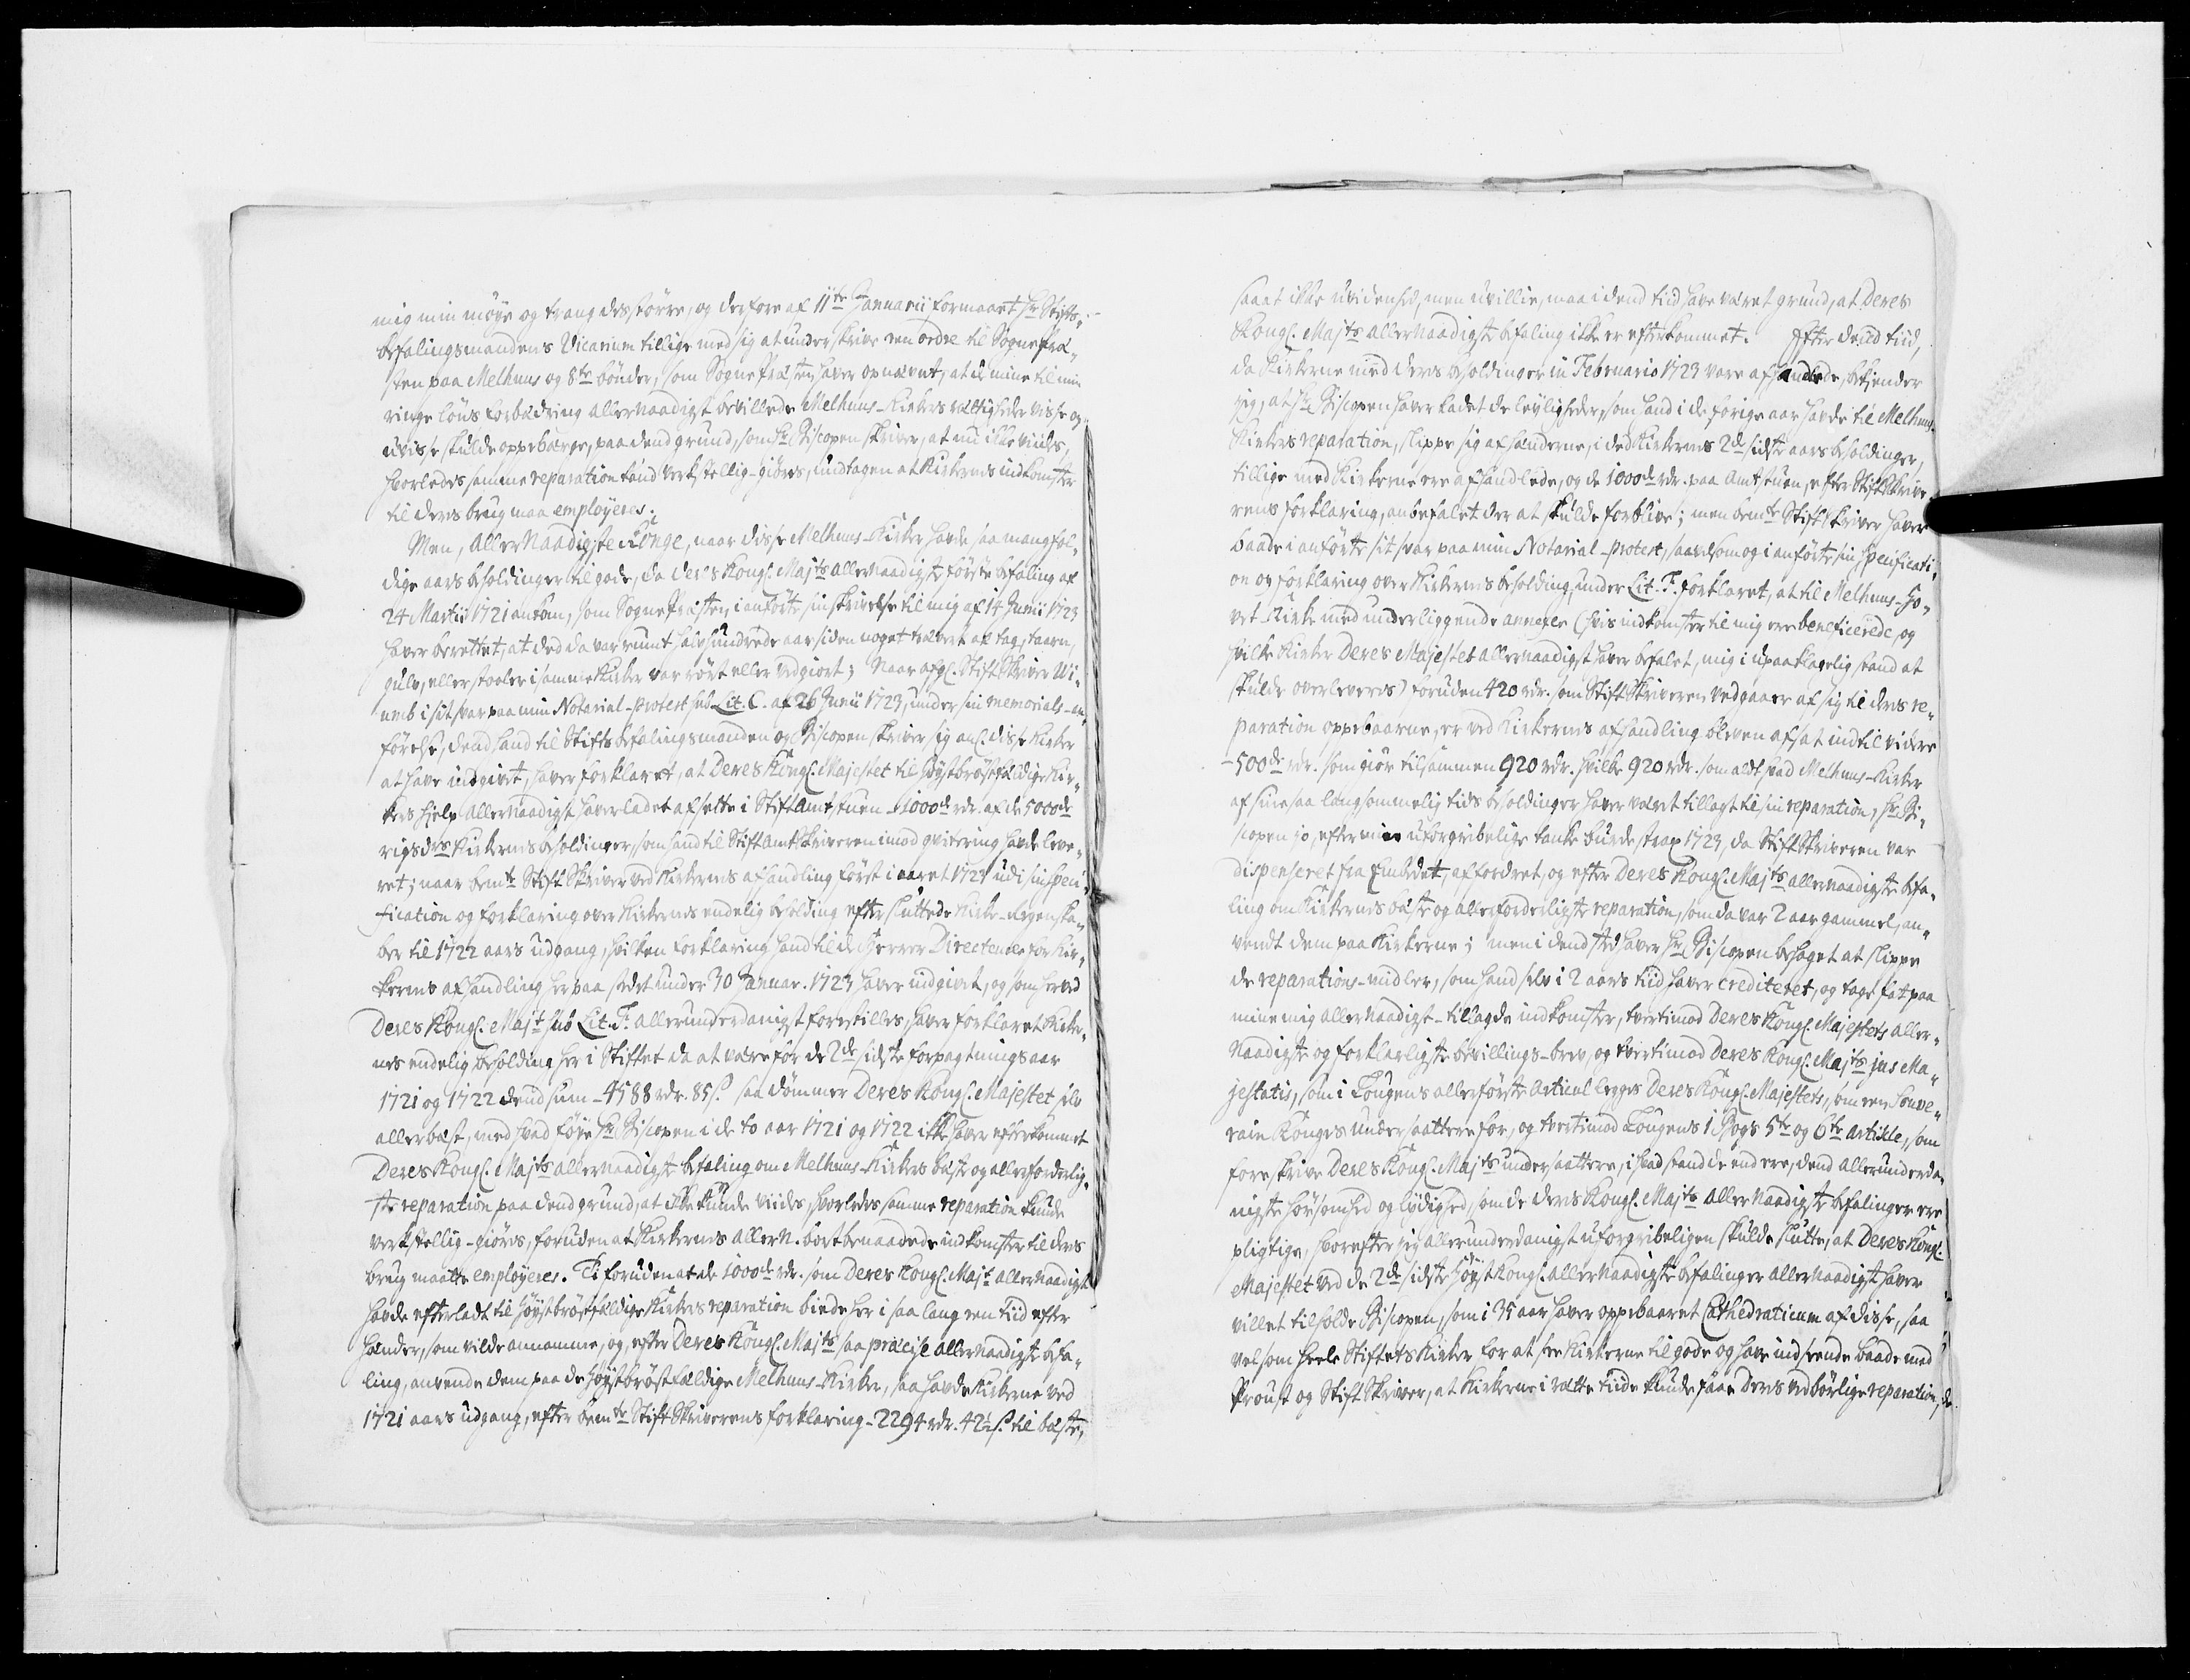 mig min møye og trang dessstørre, og derfore af 11te Januarii formaaet Hr Stifts-
befalingsmandens Vicarium tillige med sig at underskrive een ordre til Sognepræ-
sten paa Melhuus og 8te bønder, som Sognepræsten haver opnævnt, at de mine til min
ringe løns forbædring allernaadigst bevillede Melhuus-Kirkers rettigheder visse og
uvisse skulde oppebærge, paa dend grund, som Hr Biscopen skriver, at nu ikke viides,
hvorledes samme reparation kand verkstellig-giøres, undtagen at Kirkernes indkomster
til deres brug maa employeres.
Men, Aller Naadigste Konge, naar disse Melhuus-Kirker havde saa mangfol-
dige aars beholdinger til gode, da Deres Kongl. Majts allernaadigst første befaling af
24 Martii 1721 ankom, som Sognepræsten i anførte sin skrivelse til mig af 14 Junii 1723
haver berettet, at ded da var rumt halvhundrede aar siden noget træværk af tag, taarn,
gulv, eller stoele i samme Kirker var rørt eller vedgiort; Naar afgl. StiftSkriver Wi-
umb i sit svar paa min Notarial-Protest sub Lit. C. af 26 Junii 1723, under sin memorials-an-
førelse, dend hand til Stiftsbefalingsmanden og Biscopen skriver sig anl. disse Kirker
at have indgivet, haver forklaret, at Deres Kongl. Majestet til høystbrøstfældige Kir-
kers hielp Allernaadigst haver ladet afsette i StiftAmtstuen - 1000de rdr. af de 5000de
rigsdrs Kirkernes beholdinger, som hand til StiftAmtskriveren imod qvitering havde leve-
ret; naar bemte StiftSkriver ved Kirkernes afhandling først i aaret 1723 udi sin speci-
fication og forklaring over Kirkernes endelig beholding efter sluttede Kirke-Regenska-
ber til 1722 aars udgang, hvilken forklaring hand til de Herrer Directeurer for Kir-
kernes afhandling her paa stedet under 30 Januar. 1723 haver indgivet, og som herved
Deres Kongl. Majt sub Lit. F. allerunderdanigst forestilles, haver forklaret Kirker-
nes endelig beholding her i Stiftet da at være for de 2de sidste forpagtnings aar
1721 og 1722 dend sum - 4588 rdr. 85 s. saa dømmer Deres Kongl. Majestet selv
allerbæst, med hvad føye Hr Biscopen i de to aar 1721 og 1722 ikke haver efterkommet
Deres Kongl. Majts allernaadigst befaling om Melhuus-Kirkers bæste og allerforderlig-
ste reparation paa dend grund, at ikke kunde viides, hvorledes samme reparation kunde
verkstellig-giøres, foruden at Kirkernes allern. bortbenaadede indkomster til deres
brug maatte employeres. Ti foruden at de 1000de rdr. som Deres Kongl. Majt allernaadigst
havde efterladt til høystbrøstfældige Kirkers reparation biede her i saa lang een tiid efter
hænder, som vilde annamme, og, efter Deres Kongl. Majts saa præcise allernaadigst befa-
ling, anvende dem paa de høystbrøstfældige Melhuus-Kirker, saa havde Kirkerne ved
1721 aars udgang, efter bemte StiftSkriverens forklaring - 2294 rdr. 42½ s. til bæste,
saa at ikke uvidenhed, men uvillie, maa i dend tiid have været grund, at Deres
Kongl. Majts allernaadigste befaling ikke er efterkommet. Efter dend tiid,
da Kirkerne med deres beholdinger in Februario 1723 vare afhandlede, befinder
jeg, at Hr Biscopen haver ladet de leyligheder, som hand i de forige aar havde til Melhuus-
Kirkers reparation, slippe sig af hænderne, i ded Kirkernes 2de sidste aars beholdinger,
tillige med Kirkerne ere afhandlede, og de 1000de rdr. paa Amtstuen, efter StiftSkrive-
rens forklaring, anbefalet der at skulde forblive; men bemte StiftSkriver haver
baade i anførte sit svar paa min Notarial-Protest, saavelsom og i anførte sin specificati-
on og forklaring over Kirkernes beholding under Lit. F. forklaret, at til Melhuus-Ho-
vet-Kirke med underliggende annexer (hvis indkomster til mig ere beneficerede, og
hvilke Kirker Deres Majestet allernaadigst haver befalet, mig i upaaklagelig stand at
skulde overleveres) foruden 420 rdr. som StiftSkriveren vedgaaer af sig til deres re-
paration oppebaarne, er ved Kirkernes afhandling bleven afsat indtil videre
- 500de rdr. som giør tilsammen 920 rdr. hvilke 920 rdr. som aldt hvad Melhuus-Kirker
af sine saa langsommelig tids beholdinger haver været tillagt til sin reparation, Hr Bi-
scopen jo, efter min uforgribelige tanke burde strax 1723, da StiftSkriveren var
dispenseret fra Embedet, affordret, og efter Deres Kongl. Majts allernaadigste befa-
ling om Kirkernes bæste og allerforderligste reparation, som da var 2 aar gammel, an-
vendt dem paa Kirkerne; men i dend sted haver Hr Biscopen behaget at slippe
de reparations-midler, som hand selv i 2 aars tiid haver crediteret, og tage fat paa
mine mig allernaadigst-tillagde indkomster, tvertimod Deres Kongl. Majestets aller-
naadigste og forklarligste bevillings-brev, og tvertimod Deres Kongl. Majts jus Ma-
jestatis, som i Lougens allerførste Articul legges Deres Kongl. Majestets, som een Souve-
rain Konges undersaattere for, og tvertimod Lougens 1 Bogs 5te og 6te artikle, som
foreskrive Deres Kongl. Majts undersaattere, i hvad stand de end ere, dend allerunderda-
nigste hørsomhed og lydighed, som de Deres Kongl. Majts allernaadigste befalinger ere
pligtige, hvorefter jeg allerunderdanigst uforgribeligen skulde slutte, at Deres Kongl.
Majestet ved de 2de sidste Høyst Kongl. allernaadigste befalinger allernaadigst haver
villet tilholde Biscopen, som i 35 aar haver oppebaaret Cathedraticum af disse, saa
vel som heele Stiftets Kirker for at see Kirkerne til gode og have indseende baade med
Proust og StiftSkriver, at Kirkerne i rætte tiide kunde faae deres vedbørlige reparation, de